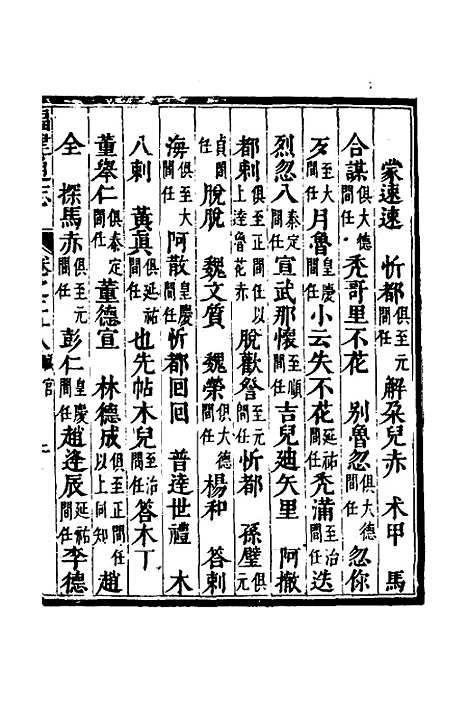 蒙速速 忻都俱至元間任 解朶兒赤 术甲 馬
合謀俱大德間任 禿哥里不花 别魯忽俱大德間任 忽你
歹至大間任 月魯皇慶間任 小云失不花延祐間任 禿滿至治間任 迭
烈忽八泰定間任 宣武那懷至順間任 吉兒廸矢里 阿撤
都剌俱至正間任以上達魯花赤 脫歡詧至元間任 忻都 孫璧俱元
貞間任 脫脫 魏文質 魏榮俱大德間任 楊和 荅剌
海俱至大間任 阿散皇慶間任 忻都回回 普達世禮 木
八剌 黃真俱延祐間任 也先帖木兒至治間任 荅木丁
董舉仁俱泰定間任 董德宣 林德成俱至正間任以上同知 趙
全 探馬赤俱至元間任 彭仁皇慶間任 趙逢辰延祐間任 李德